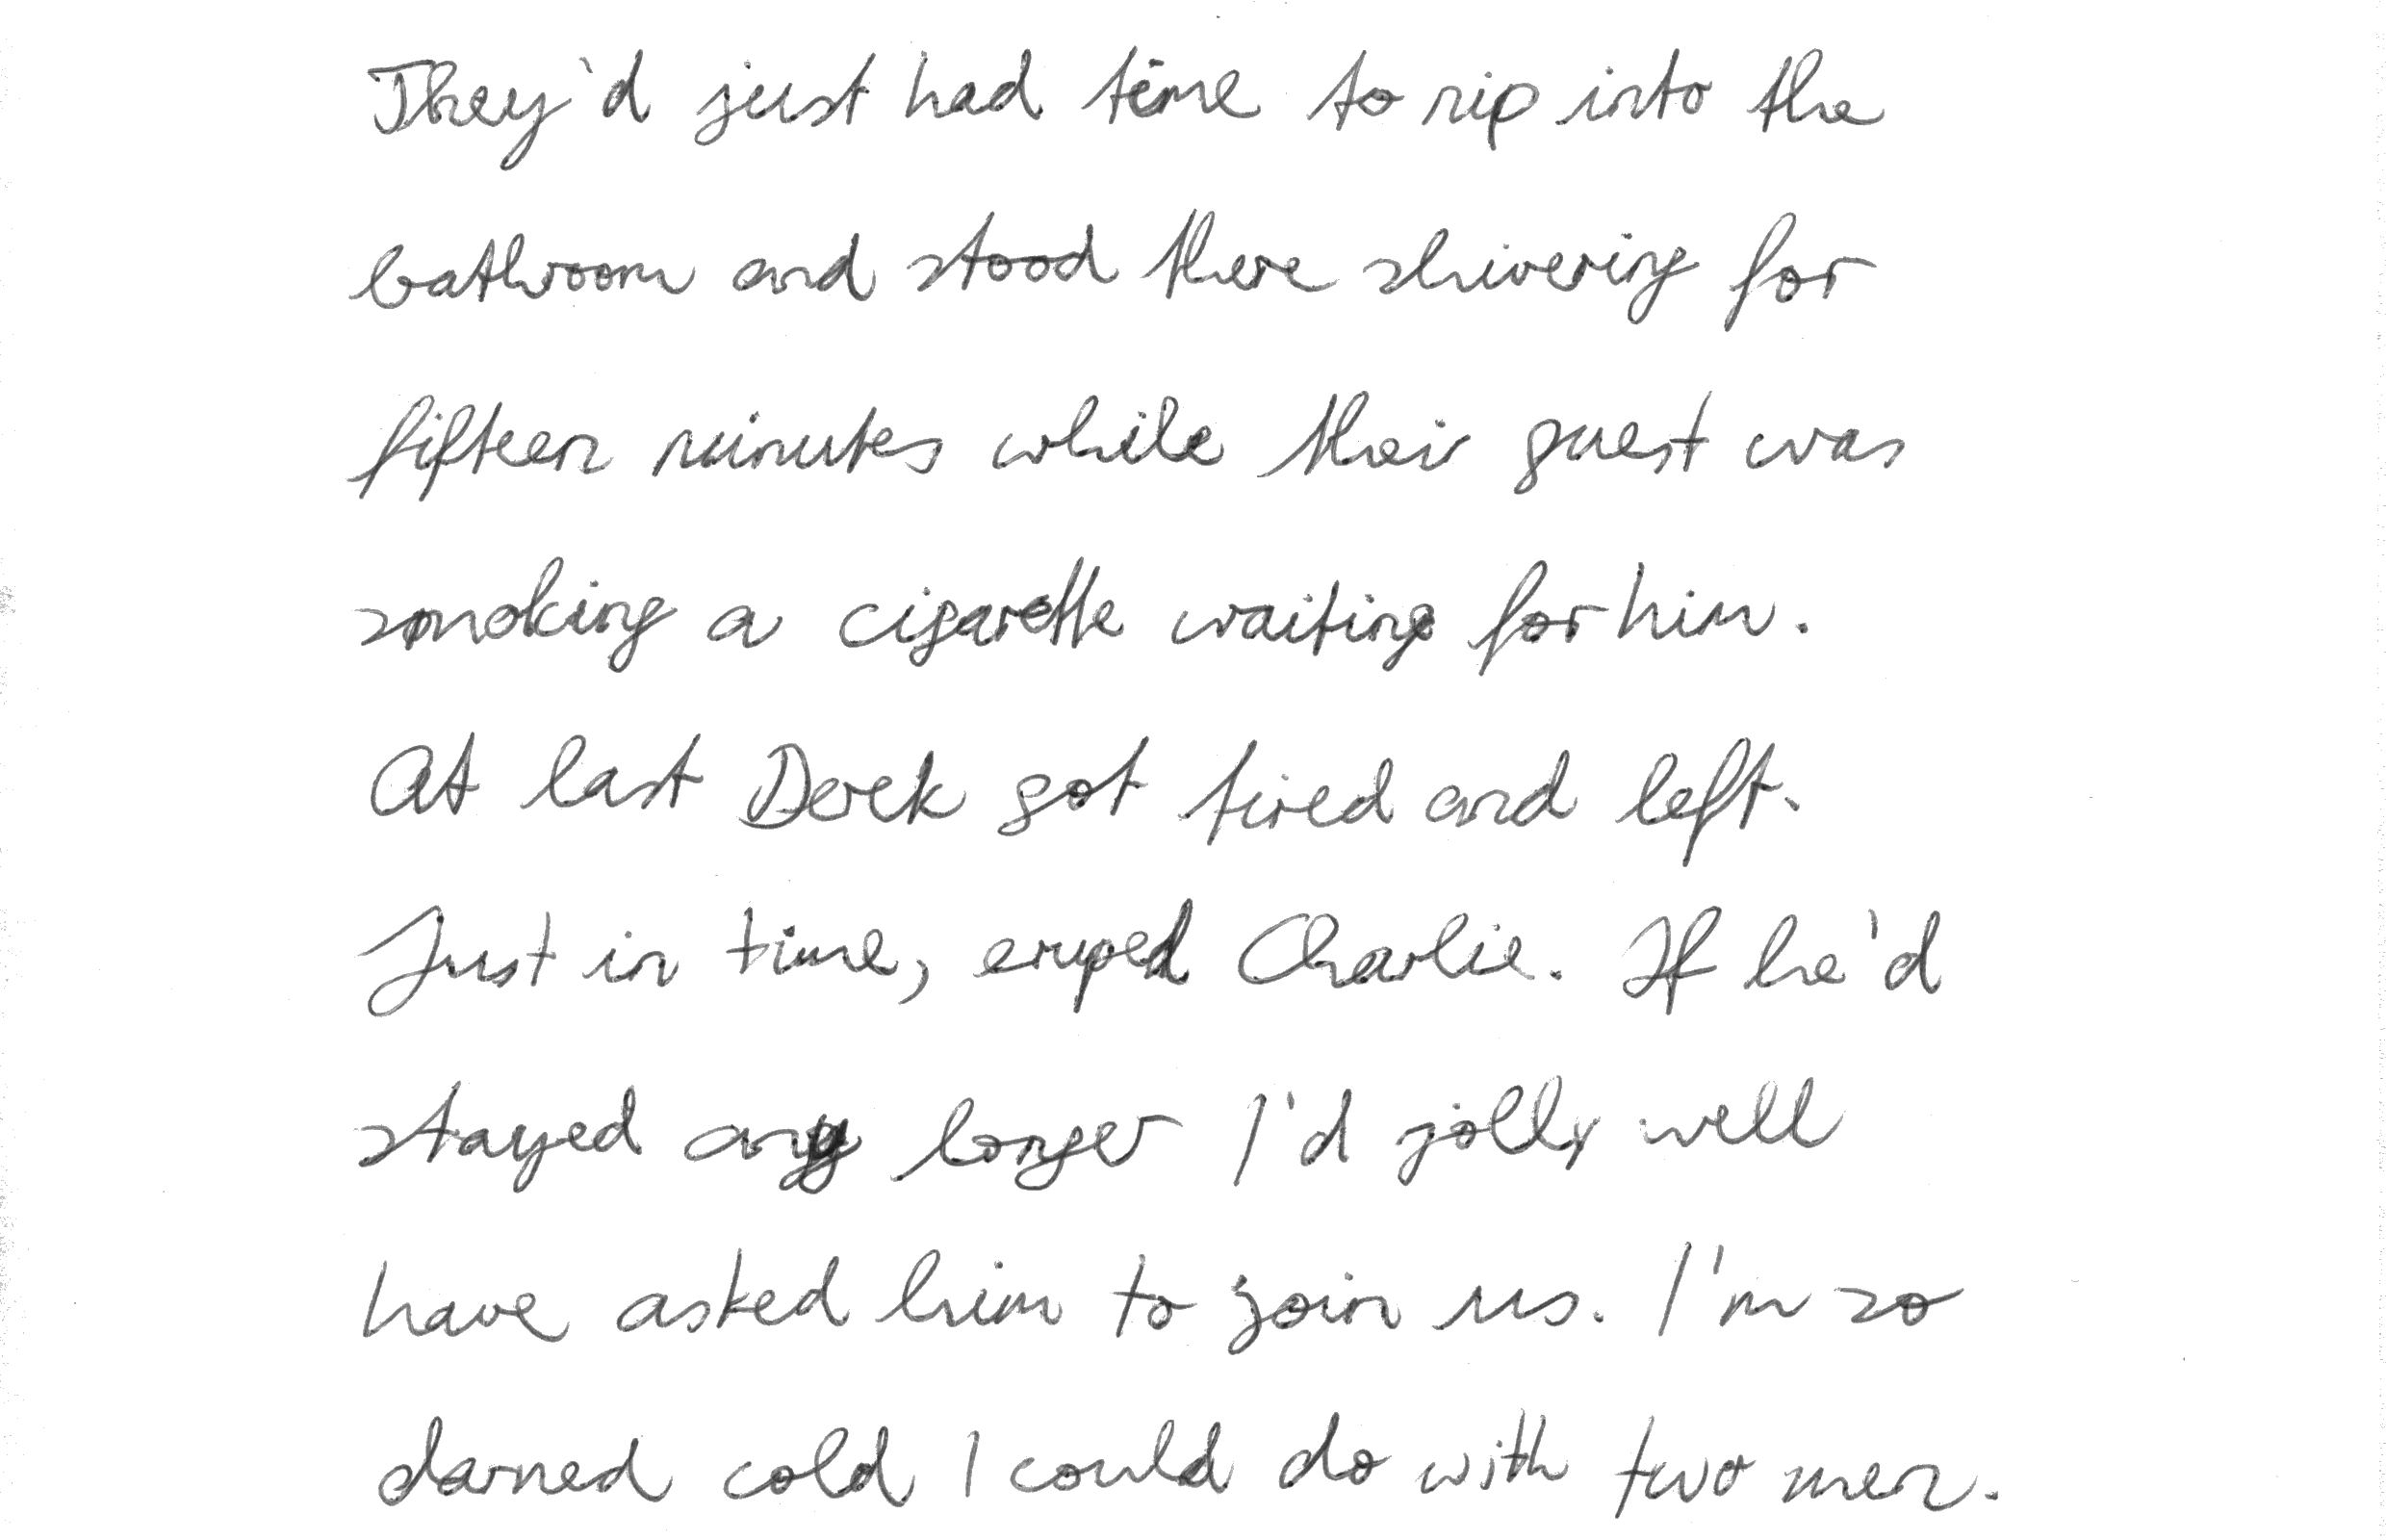 They'd just had time to rip into the
bathroom and stood there shivering for
fifteen minutes while their guest was
smoking a cigarette waiting for him.
At last Derek got tired and left.
Just in time, eryped Charlie. If he'd
stayed any longer I'd jolly well
have asked him to join us. I'm so
darned cold I could do with two men.